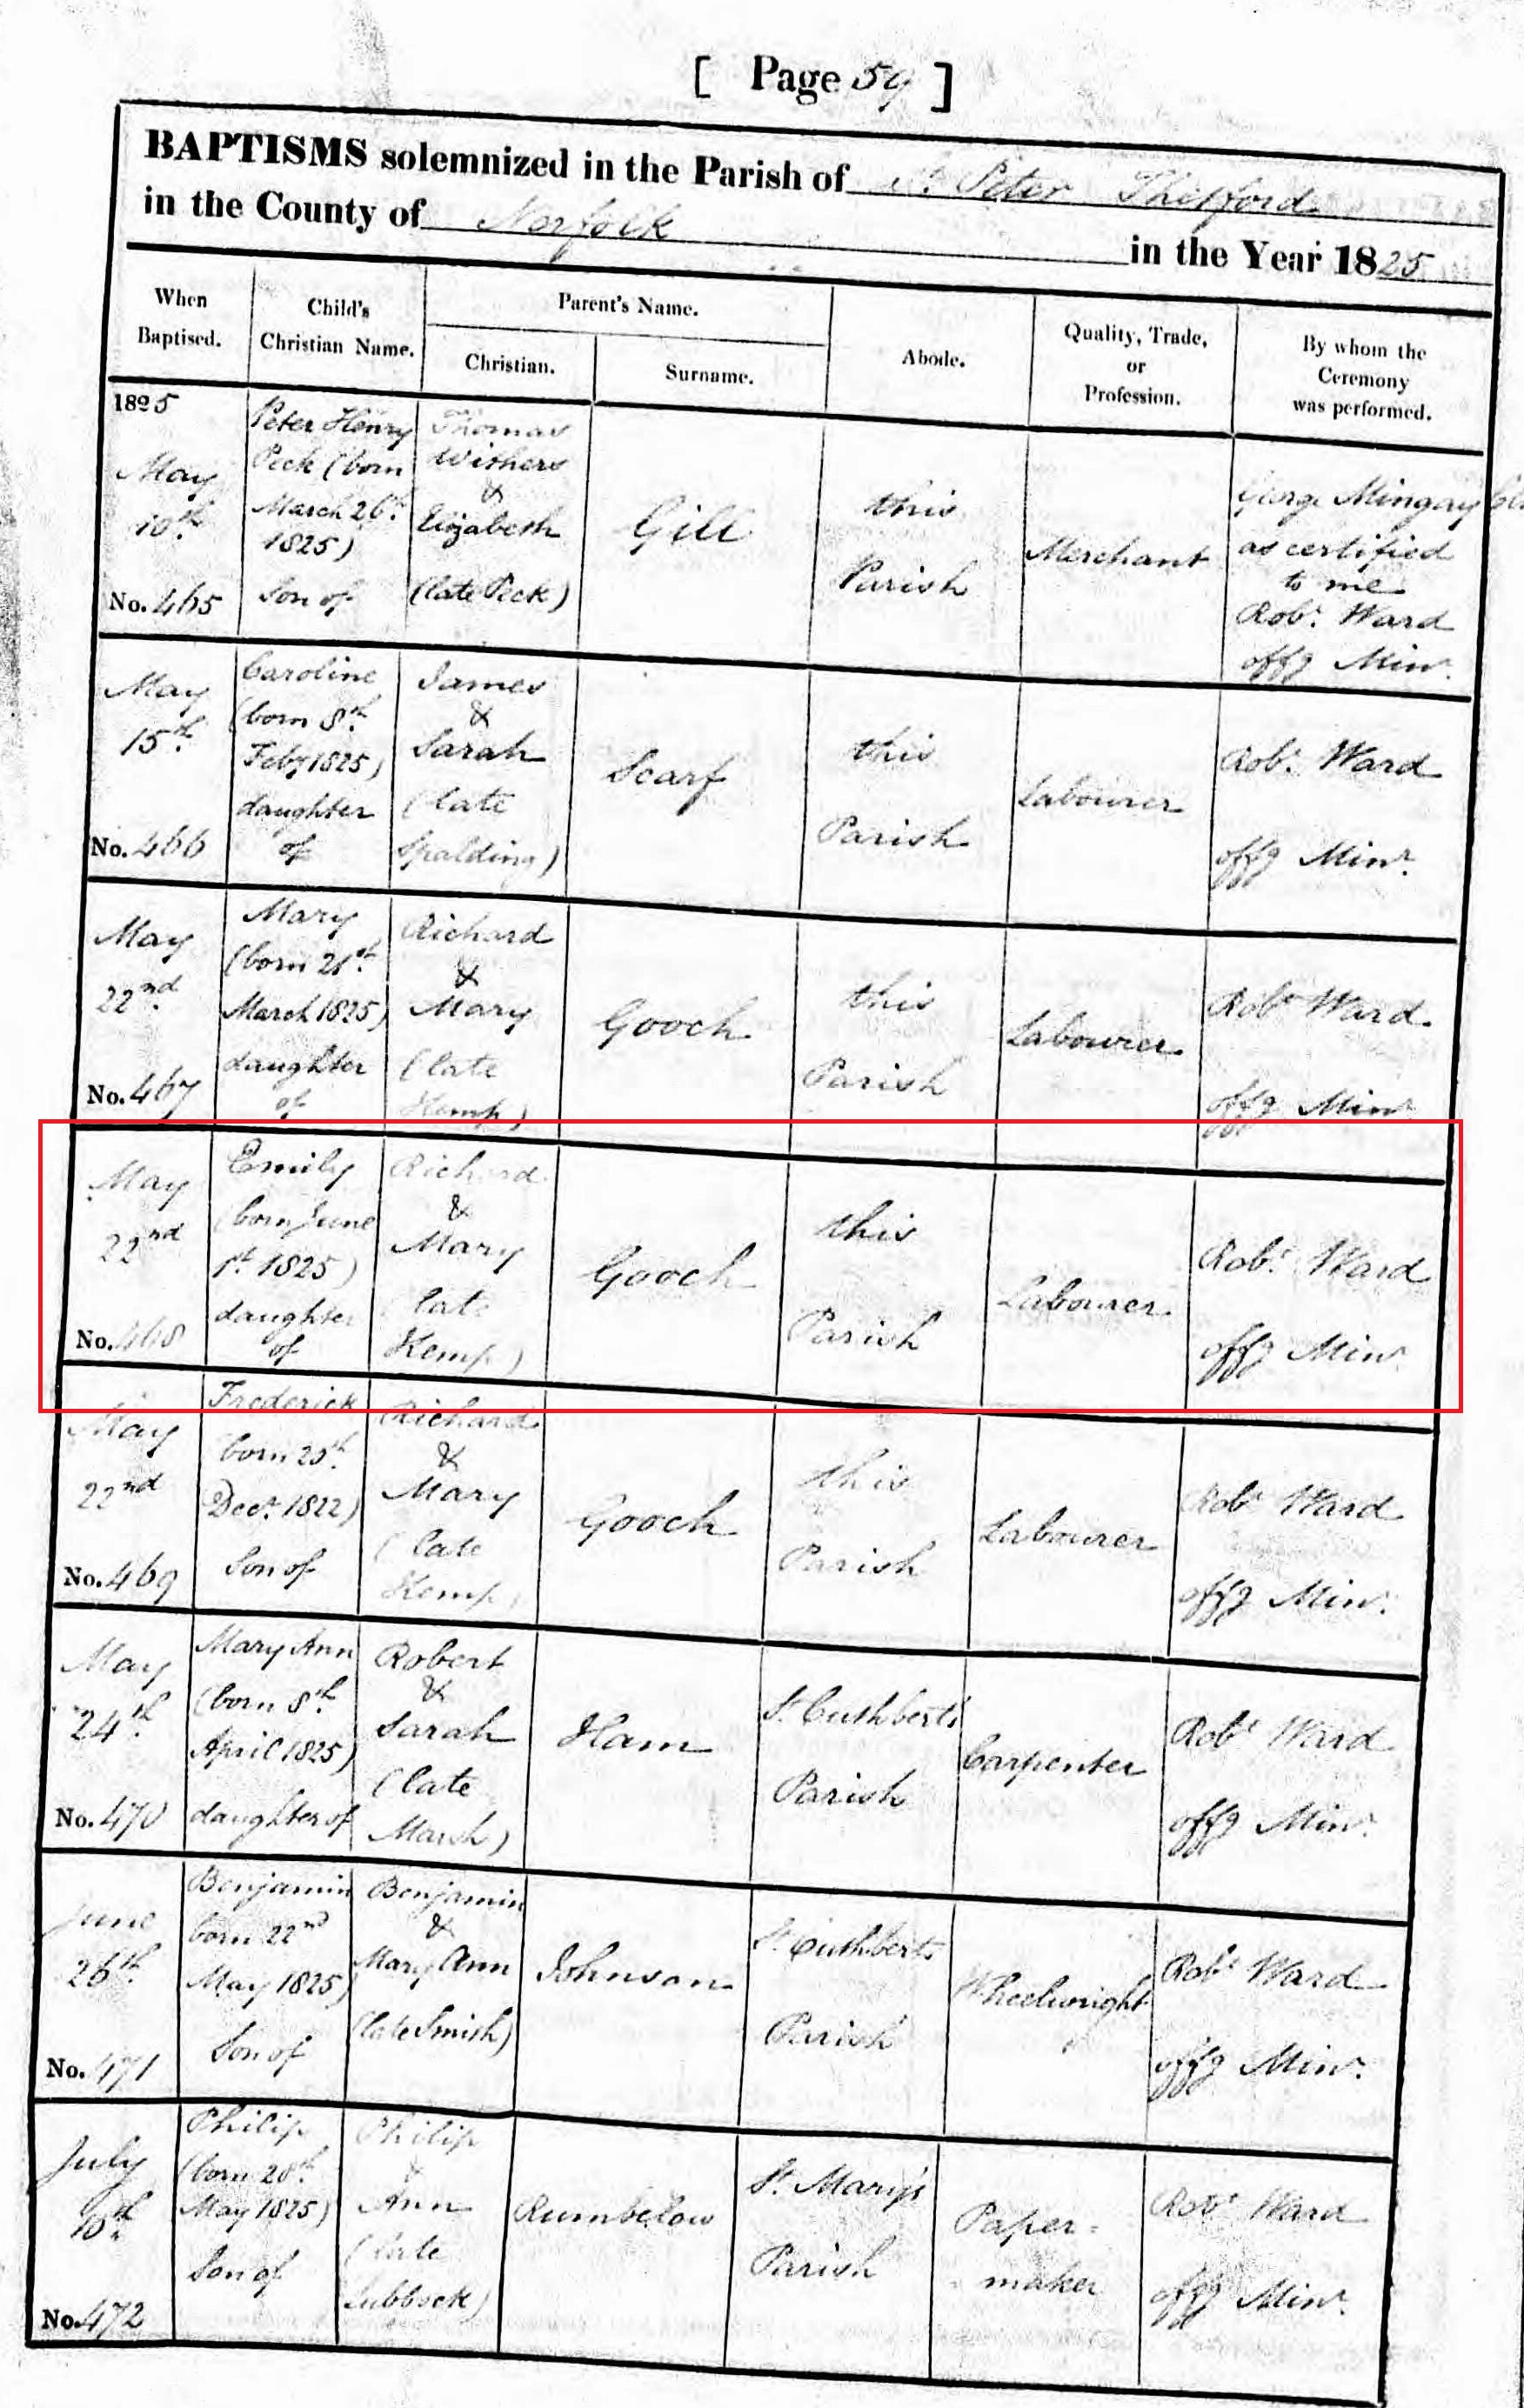 [ Page 59 ]
BAPTISMS solemnized in the Parish of St. Peter Thetford
in the County of Norfolk in the Year 1825
When Baptised.
Child's Christian Name.
Parent's Name.
Christian.
Surname.
Abode.
Quality, Trade, or Profession.
By whom the Ceremony was performed.
1825
May
10th.
No. 465
Peter Henry
Peck (born
March 26th.
1825)
Son of
Thomas
Withers
&
Elizabeth
(late Peck)
Gill
this
Parish
Merchant
George Mingay
as certified
to me
Robt. Ward
offg Minr.
May
15th.
No. 466
Caroline
(born 8th.
Feby 1825)
daughter
of
James
&
Sarah
(late
Spalding)
Scarf
this
Parish
Labourer
Robt. Ward
offg Minr.
May
22nd.
No. 467
Mary
(born 21st.
March 1825)
daughter
of
Richard
&
Mary
(late
Kemp)
Gooch
this
Parish
Labourer
Robt Ward
offg Minr
May
22nd
No. 468
Emily
(born June
1st. 1825)
daughter
of
Richard
&
Mary
late
Kemp)
Gooch
this
Parish
Labourer
Robt. Ward
offg Minr
May
22nd
No. 469
Frederick
born 20th.
Decr. 1822)
Son of
Richard
&
Mary
(late
Kemp)
Gooch
this
Parish
Labourer
Robt Ward
offg Minr.
May
24th.
No. 470
Mary Ann
(born 8th.
April 1825)
daughter of
Robert
&
Sarah
(late
Marsh)
Ham
St. Cuthbert's
Parish
Carpenter
Robt Ward
offg Minr.
June
26th.
No. 471
Benjamin
born 22nd
May 1825)
Son of
Benjamin
&
Mary Ann
(late Smith)
Johnson
St. Cuthberts
Parish
Wheelwright
Robt Ward
offg Minr.
July
10th.
No. 472
Philip
(born 20th.
May 1825)
Son of
Philip
&
Ann
(late
Lubbock)
Rumbelow
St. Mary's
Parish
Paper-
maker
Robt Ward
offg Minr.